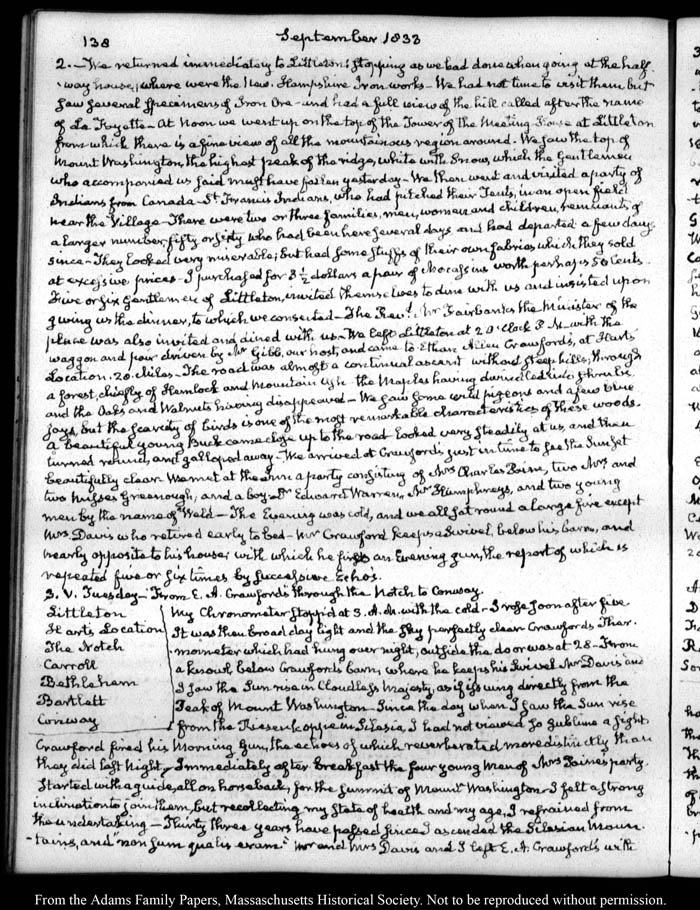 138 September 1833
2.—We returned immediately to Littleton: stopping as we had done when going at the half
way house, where were the New. Hampshire Iron works—We had not time to visit them but
saw several specimens of Iron Ore—and had a full view of the hill called after the name
of La Fayette—At Noon we went up on the top of the Tower of the Meeting House at Littleton
from which there is a fine view of all the mountainous region around. We saw the top of
Mount Washington, the highest peak of the ridge, white with Snow, which the Gentlemen
who accompanied us said must have fallen yesterday—We then went and visited a party of
Indians from Canada—St. Francis Indians, who had pitched their Tents, in an open field
near the Village—There were two or three families, men, women and children, remnants of
a larger number, fifty or sixty who had been here several days and had departed a few days
since—They looked very miserable; but had some stuffs of their own fabrics which they sold
at excessive prices—I purchased for 3½ dollars a pair of Mocassins worth perhaps 50 Cents.
Five or six Gentlemen of Littleton, invited themselves to dine with us and insisted upon
giving us the dinner, to which we consented—The Revd. Mr Fairbanks the Minister of the
place was also invited and dined with us—We left Littleton at 2 O'Clock P. M. with the
waggon and pair driven by Mr Gibb, our host, and came to Ethan Allen Crawford's, at Harts
Location. 20. Miles—The road was almost a continual ascent without steep hills, through
a forest, chiefly of Hemlock and Mountain Ash—the Maples having dwindled into shrubs
and the Oaks and Walnuts having disappeared—We saw some wild pigeons and a few blue
jays, but the scarcity of birds is one of the most remarkable characteristics of these woods.
a beautiful young Buck came close up to the road looked very steadily at us, and then
turned round, and galloped away—We arrived at Crawford's just in time to see the Sunset
beautifully clear. We met at the Inn a party consisting of Mrs Charles Paine, two Mrs and
two Misses Greenough, and a boy—Dr Edward Warren, Mr Humphreys, and two young
men by the name of Weld—The Evening was cold, and we all sat round a large fire except
Mrs. Davis who retired early to bed—Mr Crawford keeps a Swivel, below his barn, and
nearly opposite to his house; with which he fires an Evening gun, the report of which is
repeated five or six times by successive Echo's.
3. V. Tuesday—From E. A. Crawford's through the Notch to Conway.
Littleton
Harts Location
The Notch
Carroll
Bethlehem
Bartlett
Conway
My Chronometer stopp'd at 3. A. M. with the cold—I rose soon after five
It was then broad day light and the sky perfectly clear. Crawfords Ther-
mometer which had hung over night, outside the door was at 28—From
a knowl below Crawfords barn, where he keeps his Swivel Mr Davis and
I saw the Sun rise in Cloudless Majesty, as if issuing directly from the
Peak of Mount Washington—Since the day when I saw the Sun rise
from the Riesenkoppe in Silesia, I had not viewed so sublime a sight.
Crawford fired his Morning Gun, the echoes of which reverberated more distinctly than
they did last Night—Immediately after breakfast the four young Men of Mrs Paine's party.
started with a guide, all on horseback, for the summit of Mount Washington—I felt a strong
inclination to join them, but recollecting my State of health and my age, I refrained from
the undertaking—Thirty three years have passed since I ascended the Silesian Moun-
-tains, and "non sum qualis eram." Mr and Mrs Davis and I left E. A. Crawford's with
From the Adams Family Papers, Massachusetts Historical Society. Not to be reproduced without permission.